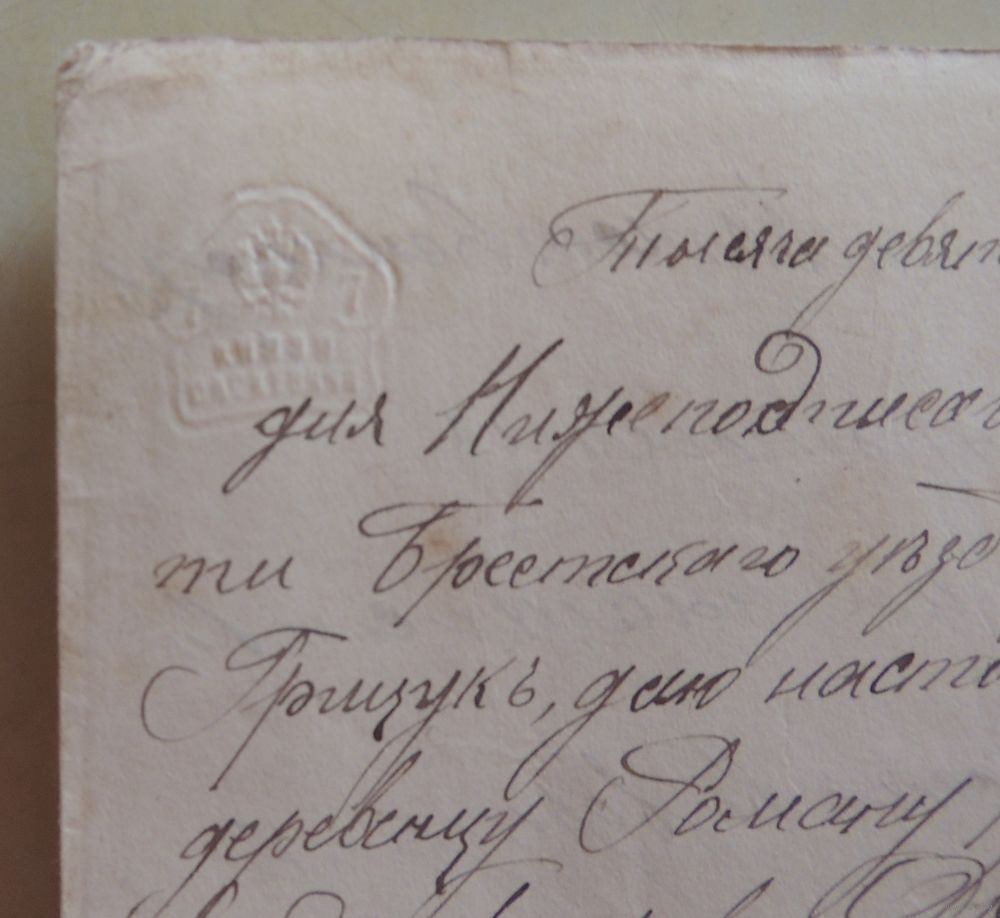 7 7
КНЯЗИ
Тысяча девят
дня Нижеподписа
ти Брестскаго уѣзд
Грицукъ, даю насто
деревенцу Роману